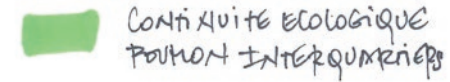 CONTINUITE ECOLOGIQUE
POUMON INTERQUARTIERS